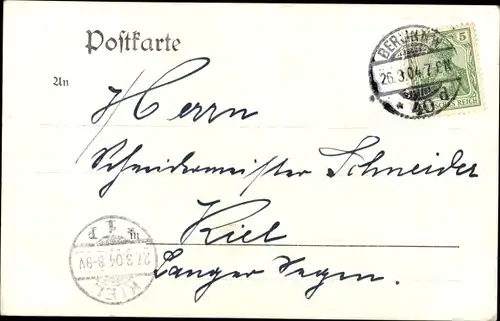 Postkarte
5
BERLIN N.
26.3.04.7-8N
* 40 d
REICH
An
Herrn
Schneidermeister Schneider
in
Kiel
Langer Segen.
* 1 P
27.3.04.8-9V
KIEL